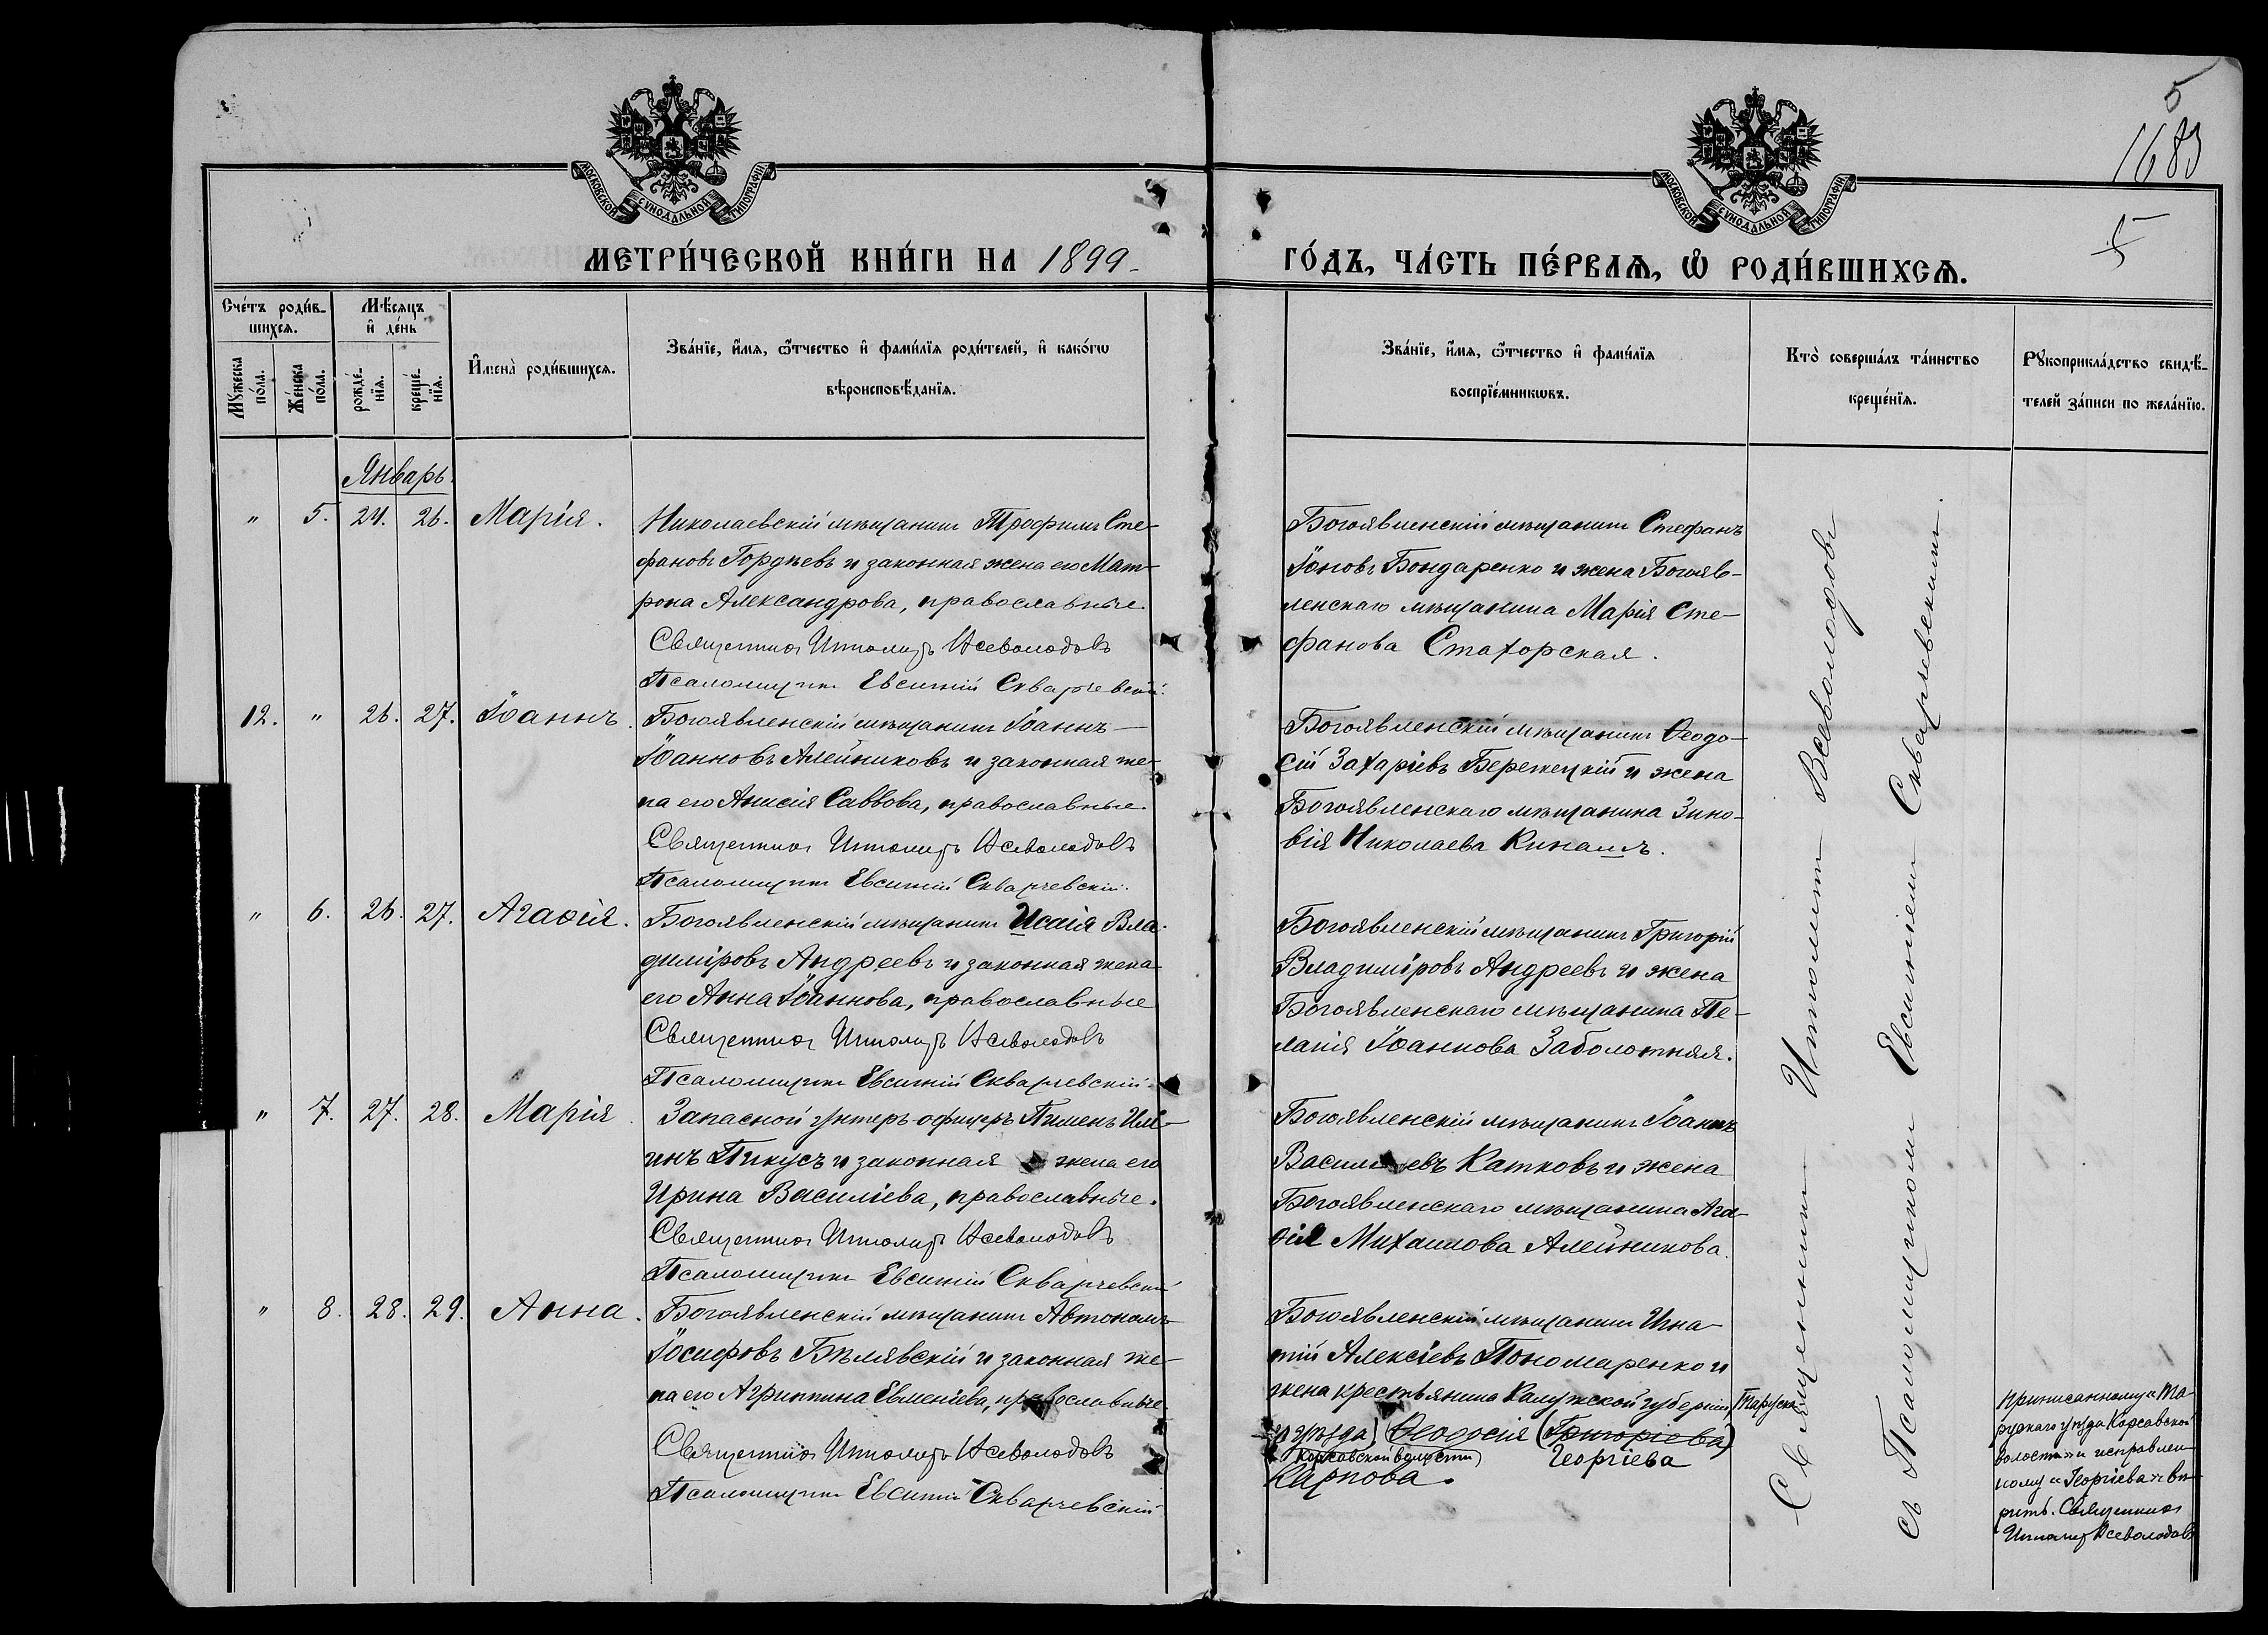 5
1683
5
МОСКОВСКОЙ СѴНОДАЛЬНОЙ ТИПОГРАФІИ
МОСКОВСКОЙ СѴНОДАЛЬНОЙ ТИПОГРАФІИ
МЕТРИ́ЧЕСКОЙ КНИ́ГИ НА 1899
ГО́ДЪ, ЧА́СТЬ ПЕ́РВАѦ, Ѡ҆ РОДИ́ВШИХСѦ.
Сче́тъ роди́в-
шихсѧ.
Мꙋ́жеска по́ла.
Же́нска по́ла.
Мѣ́сяцъ
и҆ де́нь
рожде́-нїѧ.
креще́-нїѧ.
И҆мена̀ роди́вшихсѧ.
Зва́нїе, и҆́мѧ, ѻ҆́тчество и҆ фами́лїѧ роди́телей, и҆ како́гѡ
вѣроисповѣ́данїѧ.
Зва́нїе, и҆́мѧ, ѻ҆́тчество и҆ фами́лїѧ
воспрїе́мникѡвъ.
Кто̀ соверша́лъ та́инство
креще́нїѧ.
Рꙋкоприкла́дство свидѣ́-
телей за́писи по жела́нїю.
Январь.
" 5. 24. 26. Марія.
Николаевскій мѣщанинъ Трофимъ Сте-
фановъ Гордѣевъ и законная жена его Мат-
рона Александрова, православные.
Священникъ Ипполитъ Всеволодовъ
Псаломщикъ Евсигній Скваржевскій.
Богоявленскій мѣщанинъ Стефанъ
Іоновъ Бондаренко и жена Богояв-
ленскаго мѣщанина Марія Сте-
фанова Стахорская.
12. " 26. 27. Іоаннъ.
Богоявленскій мѣщанинъ Іоаннъ
Іоанновъ Алейниковъ и законная же-
на его Анисія Саввова, православные.
Священникъ Ипполитъ Всеволодовъ
Псаломщикъ Евсигній Скваржевскій.
Богоявленскій мѣщанинъ Ѳеодо-
сій Захаріевъ Бережецкій и жена
Богоявленскаго мѣщанина Зино-
вія Николаева Кинашъ.
" 6. 26. 27. Агаѳія.
Богоявленскій мѣщанинъ Исаія Вла-
диміровъ Андреевъ и законная жена
его Анна Іоаннова, православные
Священникъ Ипполитъ Всеволодовъ
Псаломщикъ Евсигній Скваржевскій.
Богоявленскій мѣщанинъ Григорій
Владиміровъ Андреевъ и жена
Богоявленскаго мѣщанина Пе-
лагія Іоаннова Заболотняя.
" 7. 27. 28. Марія.
Запасной унтеръ-офицеръ Пименъ Иль-
инъ Пикусъ и законная жена его
Ирина Василіева, православные.
Священникъ Ипполитъ Всеволодовъ
Псаломщикъ Евсигній Скваржевскій
Богоявленскій мѣщанинъ Іоаннъ
Васильевъ Катковъ и жена
Богоявленскаго мѣщанина Ага-
ѳія Михаилова Алейникова.
" 8. 28. 29. Анна.
Богоявленскій мѣщанинъ Автономъ
Іосифовъ Бѣлявскій и законная же-
на его Агриппина Евменіева, православные
Священникъ Ипполитъ Всеволодовъ
Псаломщикъ Евсигній Скваржевскій
Богоявленскій мѣщанинъ Игна-
тій Алексіевъ Пономаренко и
жена крестьянина Калужской губерніи, Тарусск.
уѣзда) Ѳеодосія (Григоріева)
Корсавской волости) Георгіева
Карпова.
Священникъ Ипполитъ Всеволодовъ
съ Псаломщикомъ Евсигніемъ Скваржевскимъ.
Приписанному "Та-
русскаго уѣзда Корсавской
волости" и исправлен-
ному "Георгіева" вѣ-
рить. Священникъ
Ипполитъ Всеволодовъ